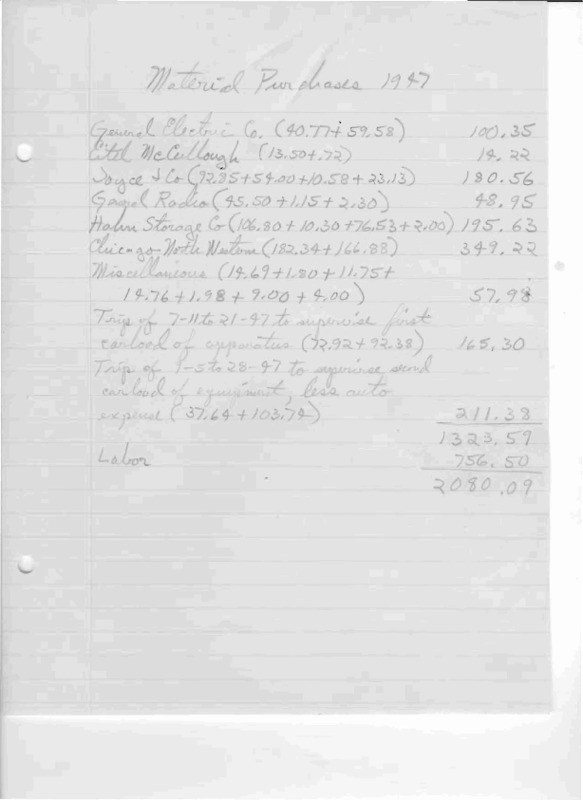 Material Purchases 1947
General Electric Co. (40.77+59.58) 100.35
McCullough (13.50+.72) 14.22
Joyce & Co (92.85+54.00+10.58+23.13) 180.56
Radio (45.50+1.15+2.30) 48.95
Hahn Storage Co (106.80+10.30+76.53+2.00) 195.63
Chicago-North Western (182.34+166.88) 349.22
Miscellaneous (14.69+1.80+11.75+
14.76+1.98+9.00+4.00) 57.98
Trip of 7-11 to 21-47 to supervise first
carload of apparatus (72.92+92.38) 165.30
Trip of 9-5 to 28-47 to supervise second
carload of equipment, less auto
expense (37.64+103.74) 211.38
1323.59
Labor 756.50
2080.09